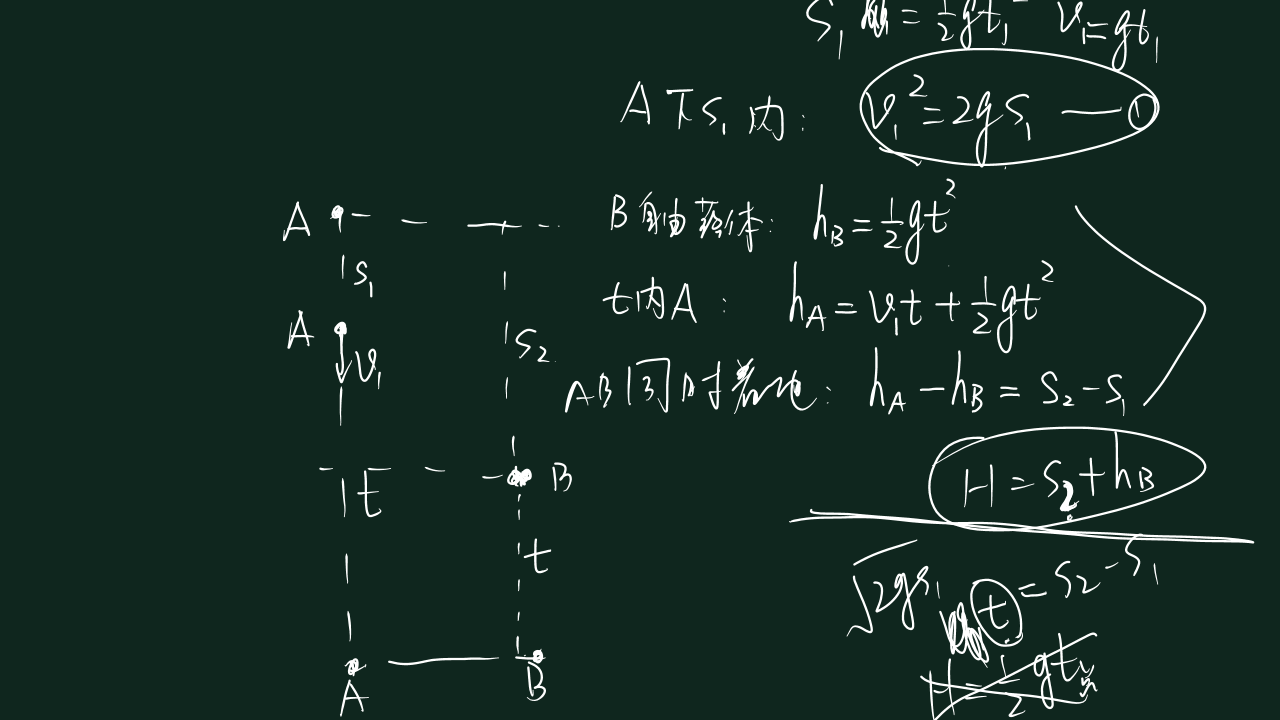 S₁ = ½gt₁² v₁=gt₁
A下S₁内: v₁²=2gS₁ — ①
B自由落体: h_B=½gt²
t内A: h_A=v₁t+½gt²
AB同时着地: h_A-h_B=S₂-S₁
H=S₂+h_B
√2gs₁ t=S₂-S₁
H=½gt
A
S₁
A
v₁
S₂
B
t
t
A
B